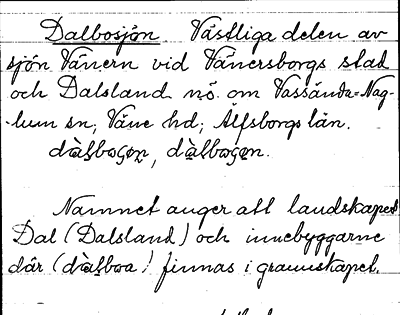 Dalbosjön Västliga delen av
sjön Vänern vid Vänersborgs stad
och Dalsland nö. om Vassända-Nag-
-lum sn, Väne hd, Älfsborgs län.
Namnet anger att landskapet
Dal (Dalsland) och innebyggarne
där (dàlboa) finnas i grannskapet.